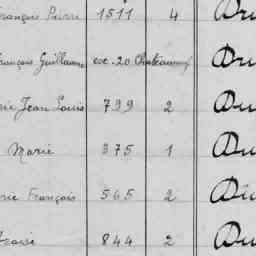 François Pierre 1511 4 Du
François Guillaume esc. 20 Chateauneuf Du
rie Jean Louis 799 2 Du
Marie 375 1 Du
rie François 565 2 Du
844 2 Du